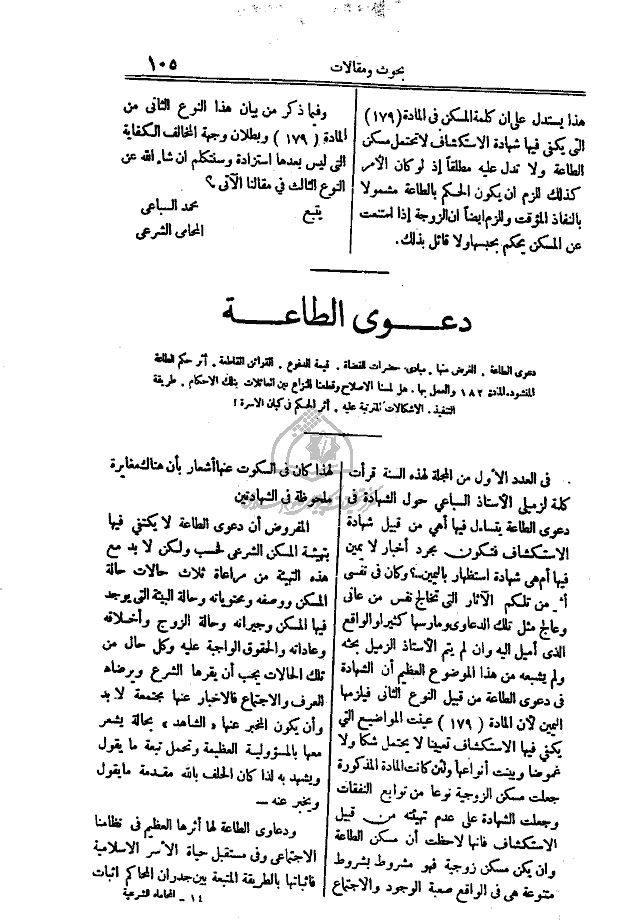 بحوث ومقالات
١٠٥
هذا يستدل على ان كلمة المسكن فى المادة (١٧٩)
التى يكتفى فيها شهادة الاستكشاف لا تحتمل مسكن
الطاعة ولا تدل عليه مطلقاً إذ لو كان الأمر
كذلك للزم ان يكون الحكم بالطاعة مشمولا
بالنفاذ المؤقت وللزم ايضاً ان الزوجة إذا امتنعت
عن المسكن يحكم بحبسها ولا قائل بذلك .
وفيما ذكر من بيان هذا النوع الثانى من
المادة ( ١٧٩ ) وبطلان وجهة المخالف الكفاية
التى ليس بعدها استزادة وسنتكلم ان شاء الله عن
النوع الثالث فى مقالنا الآتى ؟
يتبع
محمد السباعى
المحامى الشرعى
دعوى الطاعة
دعوى الطاعة . الغرض منها . مبادىء حضرات القضاة . قيمة الدفوع . القرائن القاطعة . أثر حكم الطاعة
المنشود. المادة ١٨٢ والعمل بها . هل لمسنا الاصلاح وقطعنا النزاع بين العائلات بتلك الاحكام . طريقة
التنفيذ . الاشكالات المترتبة عليه . أثر الحكم فى كيان الاسرة !
فى العدد الأول من المجلة لهذه السنة قرأت
كلمة لزميلى الأستاذ السباعي حول الشهادة فى
دعوى الطاعة يتساءل فيها أهي من قبيل شهادة
الاستكشاف فتكون مجرد أخبار لا يمين
فيها أم هى شهادة استظهار باليمين ..؟ وكان فى نفسى
من تلكم الآثار التى تخالج نفس من عانى
وعالج مثل تلك الدعاوى ومارسها كثيرا والواقع
الذى أميل اليه وان لم يتم الأستاذ الزميل بحثه
ولم يشبعه من هذا الموضوع العظيم أن الشهادة
فى دعوى الطاعة من قبيل النوع الثانى فيلزمها
اليمين لأن المادة ( ١٧٩ ) عينت المواضيع التى
يكتفى فيها الاستكشاف تعيينا لا يحتمل شكا ولا
غموضا وبينت أنواعها ولئن كانت المادة المذكورة
جعلت مسكن الزوجية نوعا من توابع النفقات
وجعلت الشهادة على عدم تهيئته من قبيل
الاستكشاف فانها لاحظت أن مسكن الطاعة
وان يكن مسكن زوجية فهو مشروط بشروط
متنوعة هى فى الواقع صعبة الوجود والاجتماع
لهذا كان فى السكوت عنها أشعار بأن هناك مغايرة
ملحوظة فى الشهادتين
المفروض أن دعوى الطاعة لا يكتفى فيها
بتهيئة المسكن الشرعى فحسب ولكن لا بد مع
هذه التهيئة من مراعاة ثلاث حالات حالة
المسكن ووصفه ومحتوياته وحالة البيئة التى يوجد
فيها المسكن وجيرانه وحالة الزوج وأخلاقه
وعاداته والحقوق الواجبة عليه وكل حال من
تلك الحالات يجب أن يقرها الشرع ويرضاه
العرف والاجتماع فالاخبار عنها مجتمعة لا بد
وأن يكون المخبر عنها « الشاهد » بحالة يشعر
معها بالمسؤولية العظيمة وتحمل تبعة ما يقول
ويشهد به لذا كان الحلف بالله مقدمة ما يقول
ويخبر عنه —
ودعاوى الطاعة لها أثرها العظيم فى نظامنا
الاجتماعى وفى مستقبل حياة الأسر الاسلامية
فاثباتها بالطريقة المتبعة بين جدران المحاكم اثبات
١٤ - المحاماه الشرعية